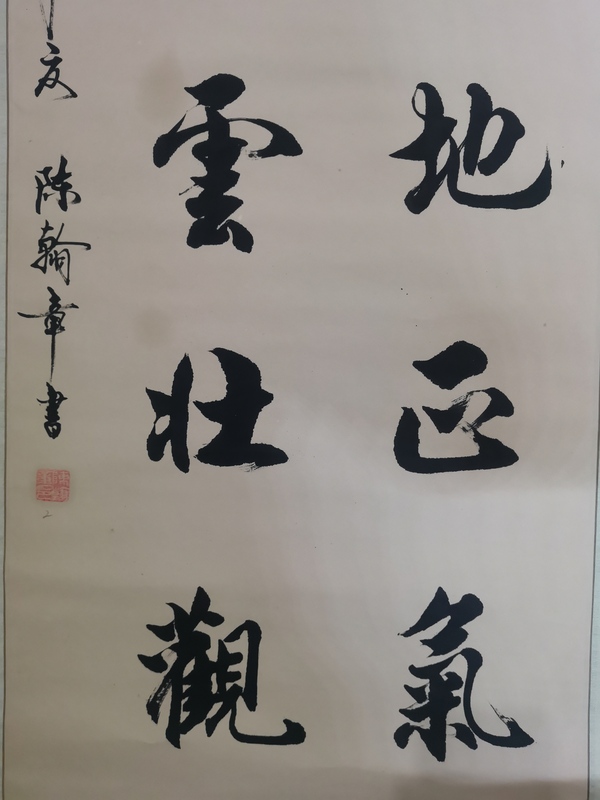 地正氣
雲壯觀
陈翰章書